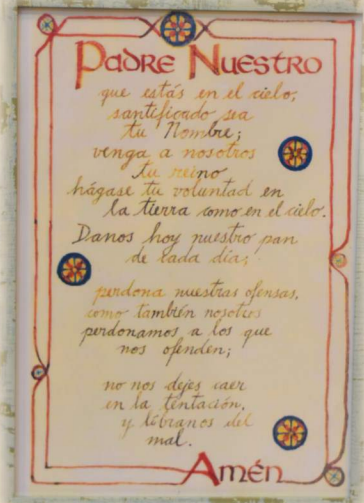 Padre Nuestro
que estás en el cielo,
santificado sea
tu Nombre;
venga a nosotros
tu reino
hágase tu voluntad en
la tierra como en el cielo.
Danos hoy nuestro pan
de cada día;
perdona nuestras ofensas,
como también nosotros
perdonamos a los que
nos ofenden;
no nos dejes caer
en la tentación,
y líbranos del
mal.
Amén